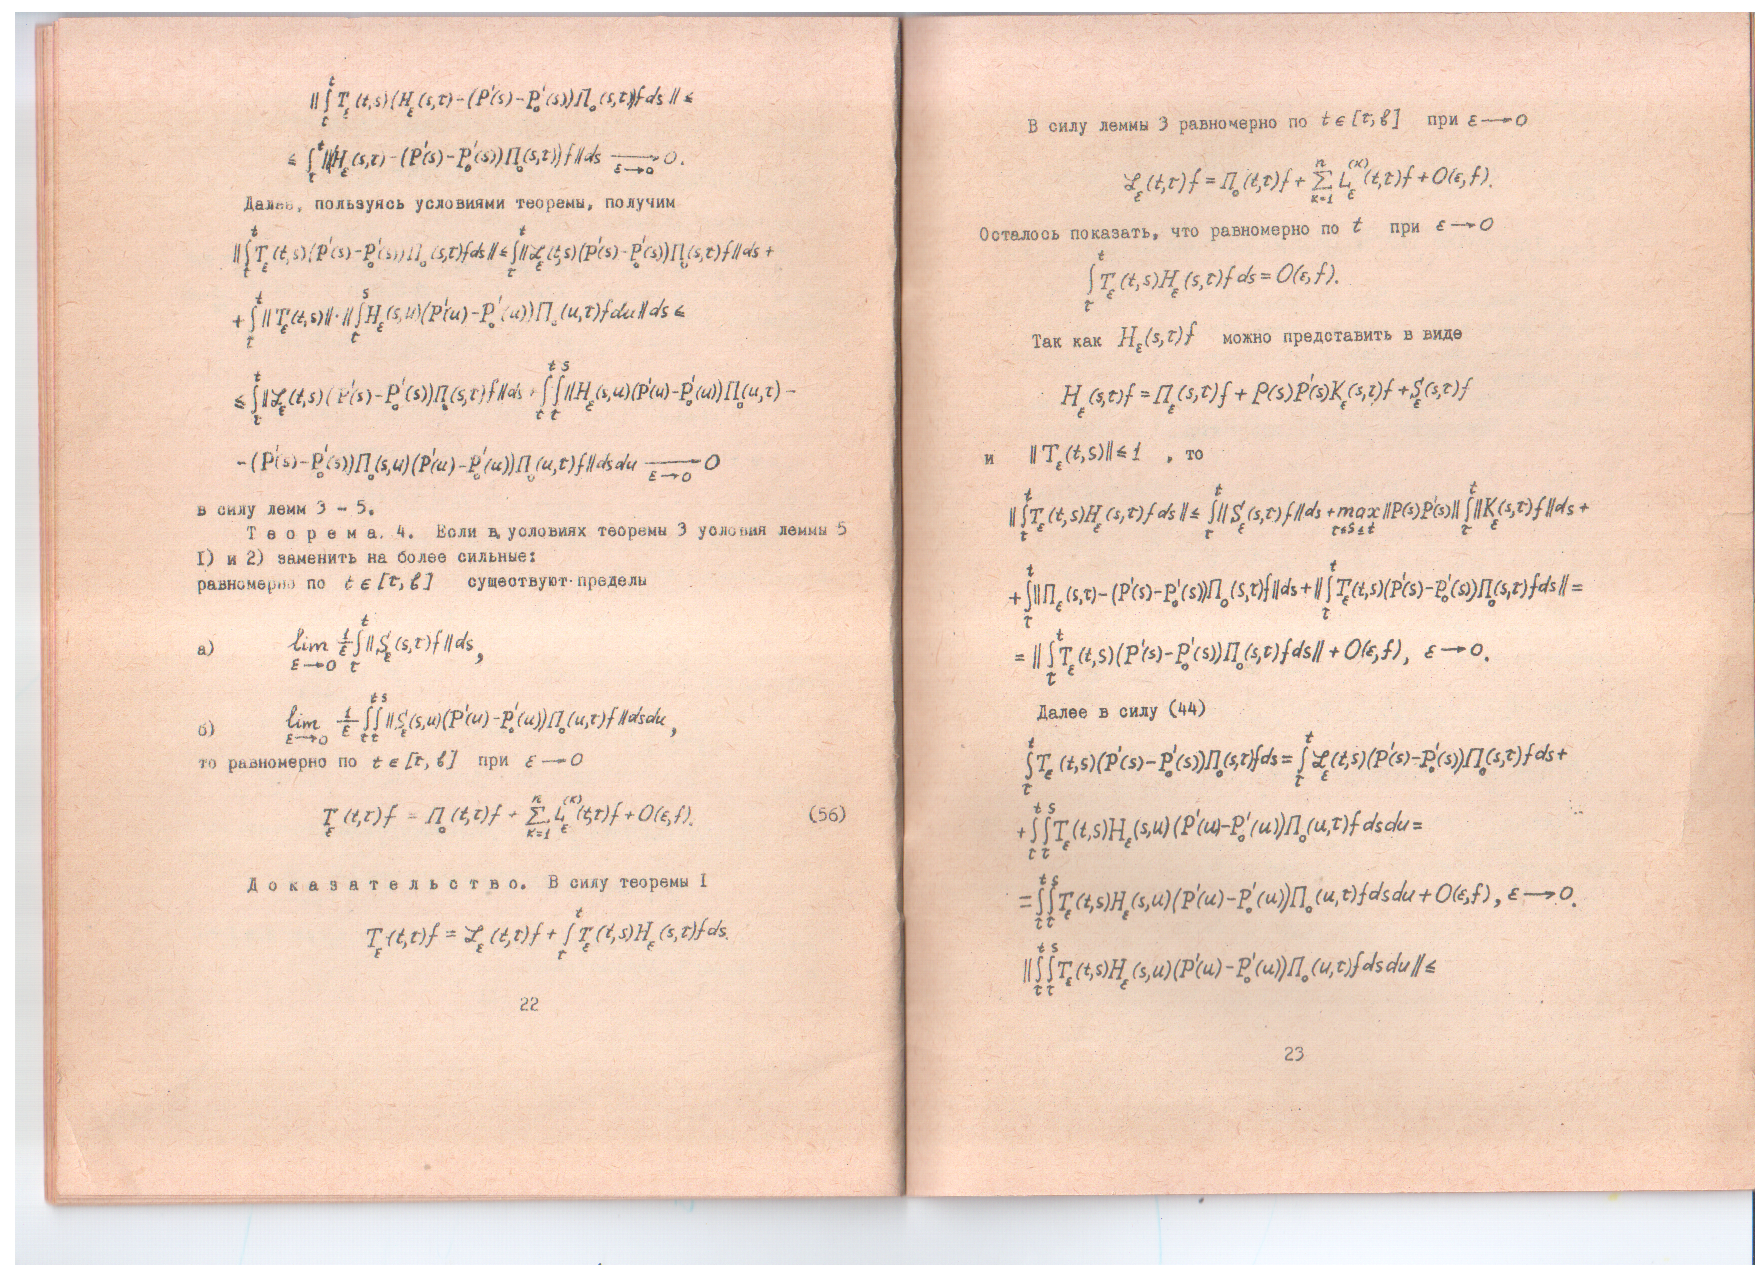 ‖∫_τ^t T_ε(t,s)(H_ε(s,τ)-(P'(s)-P_0'(s))Π_0(s,τ))f ds‖ ≤
≤ ∫_τ^t ‖(H_ε(s,τ)-(P'(s)-P_0'(s))Π_0(s,τ))f‖ds →_{ε→0} 0.
Далее, пользуясь условиями теоремы, получим
‖∫_τ^t T_ε(t,s)(P'(s)-P_0'(s))Π_0(s,τ)f ds‖ ≤ ∫_τ^t ‖ℒ_ε(t,s)(P'(s)-P_0'(s))Π_0(s,τ)f‖ds +
+ ∫_τ^t ‖T_ε(t,s)‖·‖∫_τ^s H_ε(s,u)(P'(u)-P_0'(u))Π_0(u,τ)f du‖ds ≤
≤ ∫_τ^t ‖ℒ_ε(t,s)(P'(s)-P_0'(s))Π_0(s,τ)f‖ds + ∫_τ^t ∫_τ^s ‖H_ε(s,u)(P'(u)-P_0'(u))Π_0(u,τ) -
-(P'(s)-P_0'(s))Π_0(s,u)(P'(u)-P_0'(u))Π_0(u,τ)f‖ds du →_{ε→0} 0
в силу лемм 3 - 5.
Теорема. 4. Если в условиях теоремы 3 условия леммы 5
I) и 2) заменить на более сильные:
равномерно по t∈[τ,b] существуют пределы
а) lim_{ε→0} 1/ε ∫_τ^t ‖S_ε(s,τ)f‖ds,
б) lim_{ε→0} 1/ε ∫_τ^t ∫_τ^s ‖S_ε(s,u)(P'(u)-P_0'(u))Π_0(u,τ)f‖ds du,
то равномерно по t∈[τ,b] при ε→0
T_ε(t,τ)f = Π_0(t,τ)f + Σ_{k=1}^n L_ε^{(k)}(t,τ)f + O(ε,f). (56)
Доказательство. В силу теоремы I
T_ε(t,τ)f = ℒ_ε(t,τ)f + ∫_τ^t T_ε(t,s)H_ε(s,τ)f ds.
22
В силу леммы 3 равномерно по t∈[τ,b] при ε→0
ℒ_ε(t,τ)f = Π_0(t,τ)f + Σ_{k=1}^n L_ε^{(k)}(t,τ)f + O(ε,f).
Осталось показать, что равномерно по t при ε→0
∫_τ^t T_ε(t,s)H_ε(s,τ)f ds = O(ε,f).
Так как H_ε(s,τ)f можно представить в виде
H_ε(s,τ)f = Π_ε(s,τ)f + P(s)P'(s)K_ε(s,τ)f + S_ε(s,τ)f
и ‖T_ε(t,s)‖ ≤ 1 , то
‖∫_τ^t T_ε(t,s)H_ε(s,τ)f ds‖ ≤ ∫_τ^t ‖S_ε(s,τ)f‖ds + max_{τ≤s≤t}‖P(s)P'(s)‖ ∫_τ^t ‖K_ε(s,τ)f‖ds +
+ ∫_τ^t ‖Π_ε(s,τ)-(P'(s)-P_0'(s))Π_0(s,τ)f‖ds + ‖∫_τ^t T_ε(t,s)(P'(s)-P_0'(s))Π_0(s,τ)f ds‖ =
= ‖∫_τ^t T_ε(t,s)(P'(s)-P_0'(s))Π_0(s,τ)f ds‖ + O(ε,f), ε→0.
Далее в силу (44)
∫_τ^t T_ε(t,s)(P'(s)-P_0'(s))Π_0(s,τ)f ds = ∫_τ^t ℒ_ε(t,s)(P'(s)-P_0'(s))Π_0(s,τ)f ds +
+ ∫_τ^t ∫_τ^s T_ε(t,s)H_ε(s,u)(P'(u)-P_0'(u))Π_0(u,τ)f ds du =
= ∫_τ^t ∫_τ^s T_ε(t,s)H_ε(s,u)(P'(u)-P_0'(u))Π_0(u,τ)f ds du + O(ε,f), ε→0.
‖∫_τ^t ∫_τ^s T_ε(t,s)H_ε(s,u)(P'(u)-P_0'(u))Π_0(u,τ)f ds du‖ ≤
23